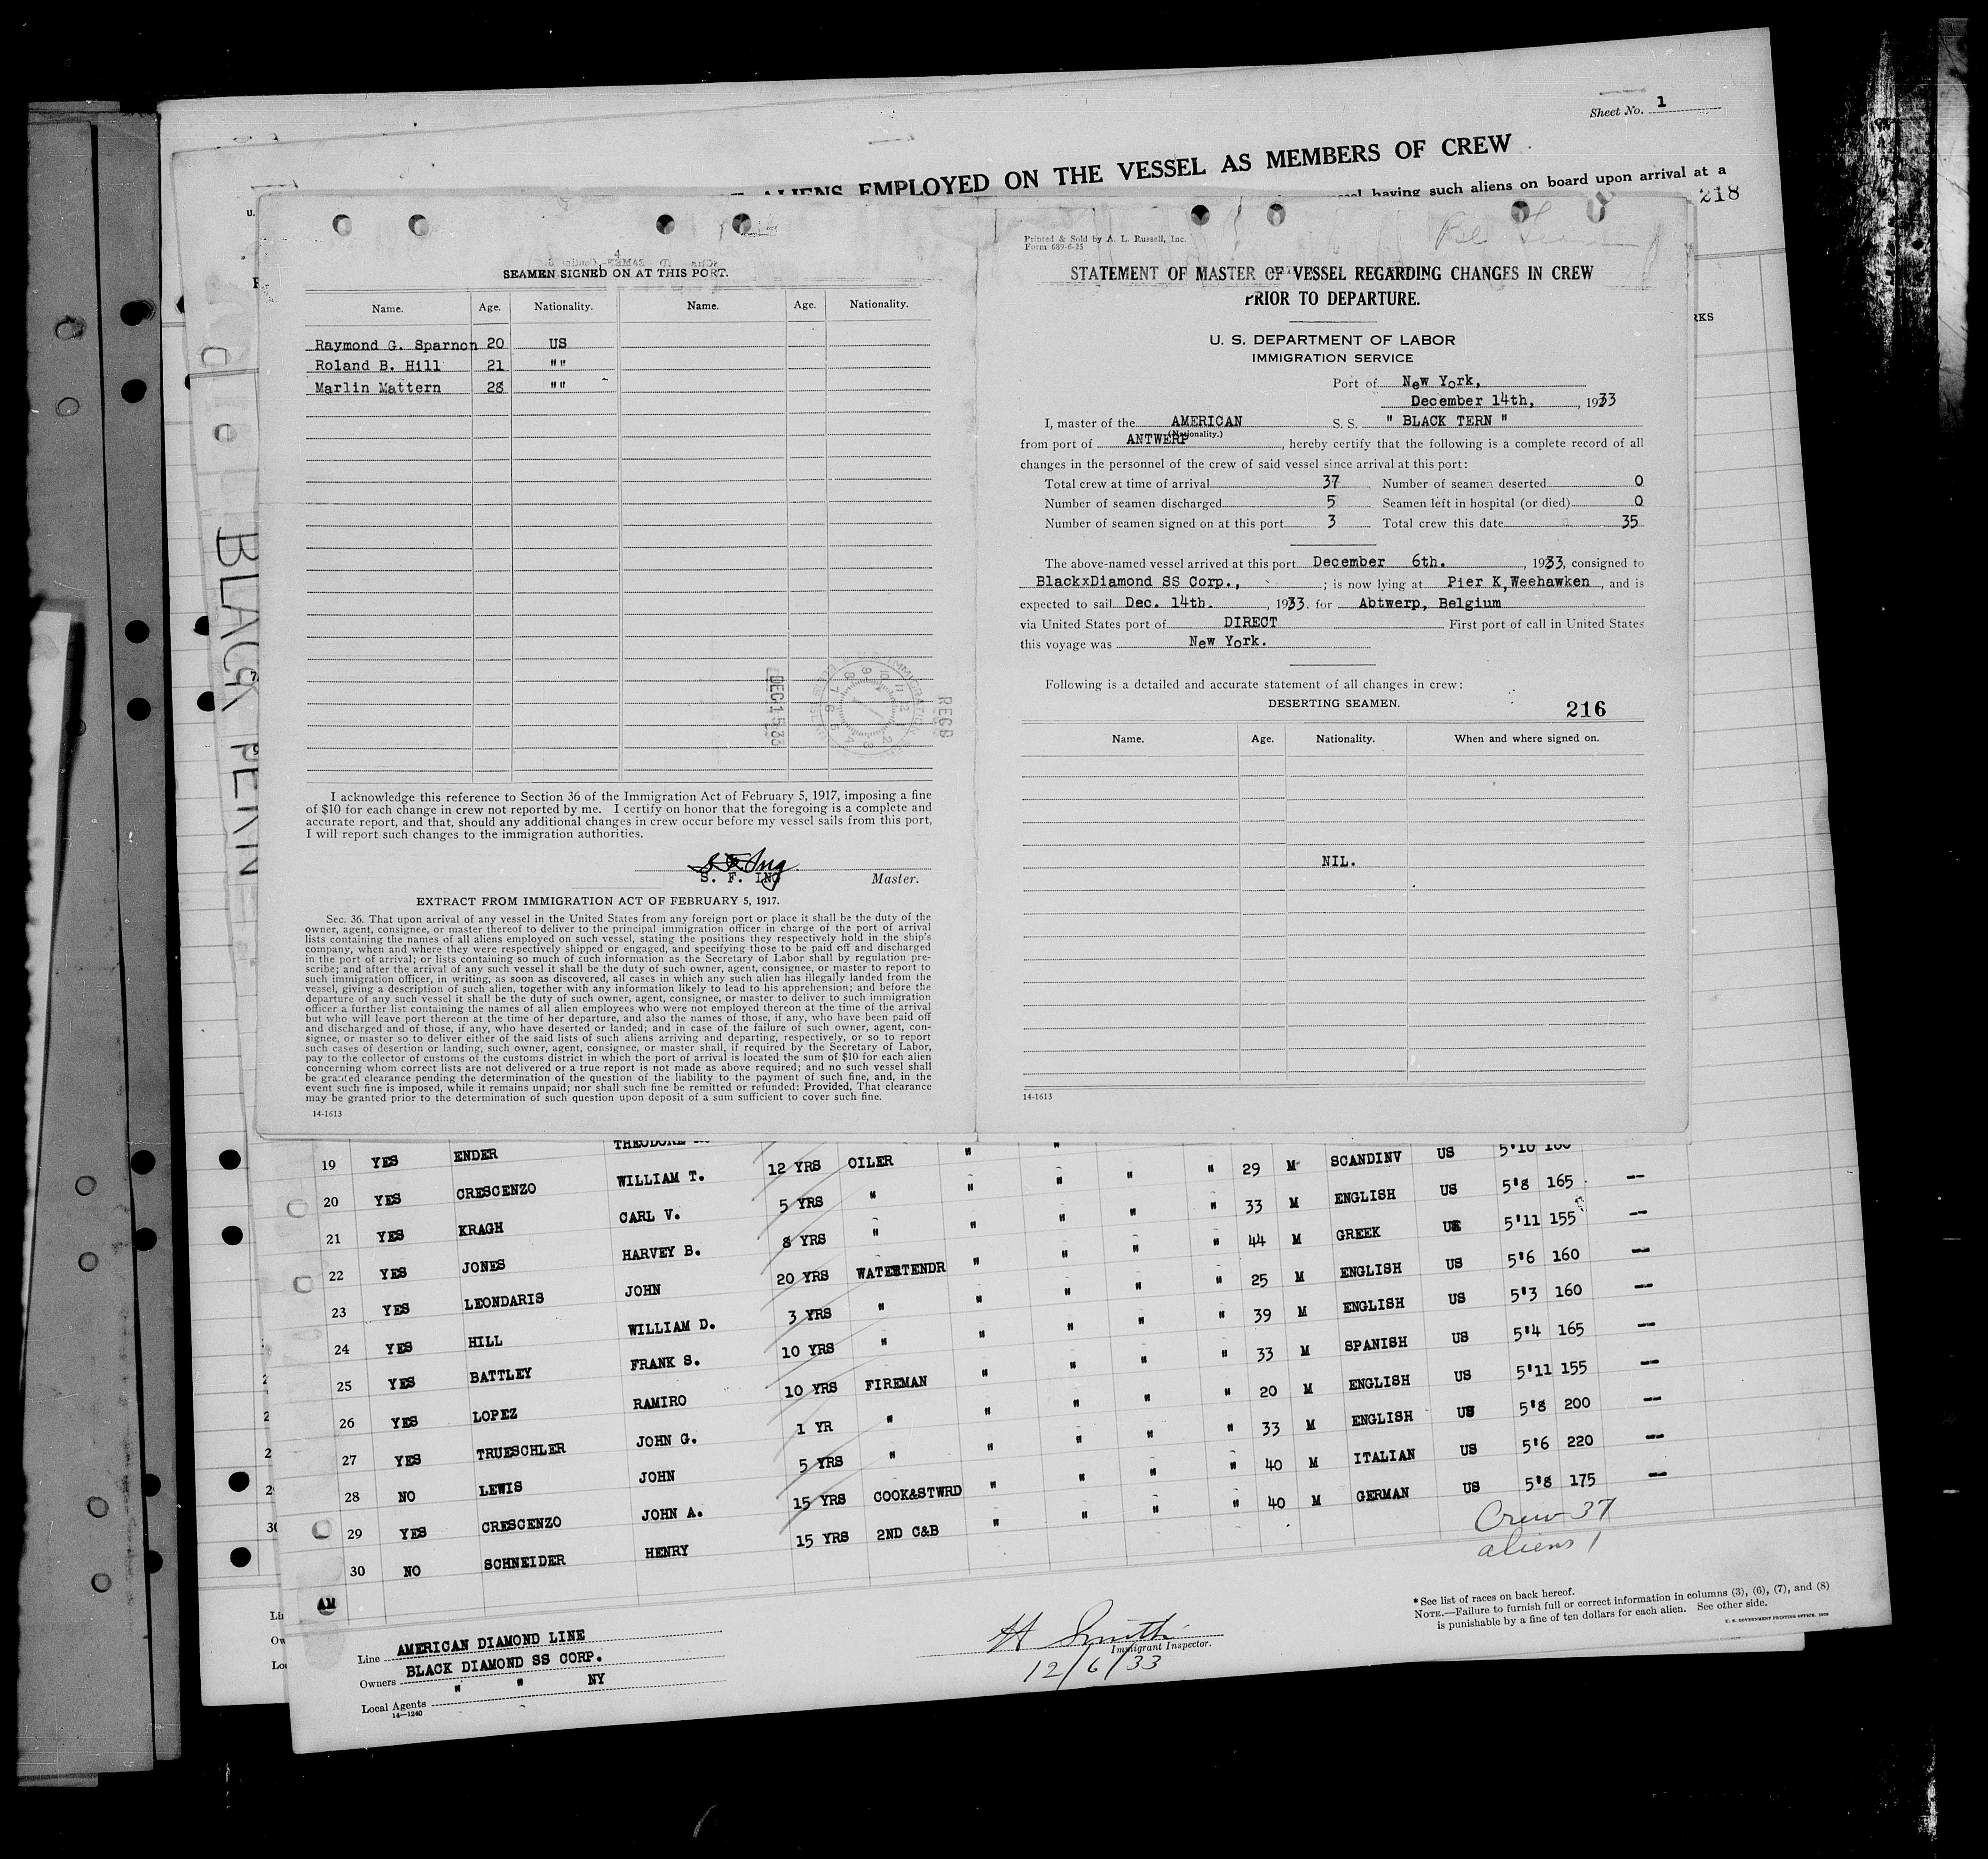 Sheet No. 1
ALIENS EMPLOYED ON THE VESSEL AS MEMBERS OF CREW
having such aliens on board upon arrival at a
218
RKS
BLACK
SEAMEN SIGNED ON AT THIS PORT.
Name. Age. Nationality. Name. Age. Nationality.
Raymond G. Sparnon 20 US
Roland B. Hill 21 " "
Marlin Mattern 28 " "
DEC 15 33
I acknowledge this reference to Section 36 of the Immigration Act of February 5, 1917, imposing a fine
of $10 for each change in crew not reported by me. I certify on honor that the foregoing is a complete and
accurate report, and that, should any additional changes in crew occur before my vessel sails from this port,
I will report such changes to the immigration authorities.
S F Ing
S. F. ING Master.
EXTRACT FROM IMMIGRATION ACT OF FEBRUARY 5, 1917.
Sec. 36. That upon arrival of any vessel in the United States from any foreign port or place it shall be the duty of the
owner, agent, consignee, or master thereof to deliver to the principal immigration officer in charge of the port of arrival
lists containing the names of all aliens employed on such vessel, stating the positions they respectively hold in the ship's
company, when and where they were respectively shipped or engaged, and specifying those to be paid off and discharged
in the port of arrival; or lists containing so much of such information as the Secretary of Labor shall by regulation pre-
scribe; and after the arrival of any such vessel it shall be the duty of such owner, agent, consignee, or master to report to
such immigration officer, in writing, as soon as discovered, all cases in which any such alien has illegally landed from the
vessel, giving a description of such alien, together with any information likely to lead to his apprehension; and before the
departure of any such vessel it shall be the duty of such owner, agent, consignee, or master to deliver to such immigration
officer a further list containing the names of all alien employees who were not employed thereon at the time of the arrival
but who will leave port thereon at the time of her departure, and also the names of those, if any, who have been paid off
and discharged and of those, if any, who have deserted or landed; and in case of the failure of such owner, agent, con-
signee, or master so to deliver either of the said lists of such aliens arriving and departing, respectively, or so to report
such cases of desertion or landing, such owner, agent, consignee, or master shall, if required by the Secretary of Labor,
pay to the collector of customs of the customs district in which the port of arrival is located the sum of $10 for each alien
concerning whom correct lists are not delivered or a true report is not made as above required; and no such vessel shall
be granted clearance pending the determination of the question of the liability to the payment of such fine, and, in the
event such fine is imposed, while it remains unpaid; nor shall such fine be remitted or refunded: Provided, That clearance
may be granted prior to the determination of such question upon deposit of a sum sufficient to cover such fine.
14-1613
Printed & Sold by A. L. Russell, Inc.
Form 689-6-25
STATEMENT OF MASTER OF VESSEL REGARDING CHANGES IN CREW
PRIOR TO DEPARTURE.
U. S. DEPARTMENT OF LABOR
IMMIGRATION SERVICE
Port of New York,
December 14th, , 1933
I, master of the AMERICAN S. S. " BLACK TERN "
(Nationality.)
from port of ANTWERP , hereby certify that the following is a complete record of all
changes in the personnel of the crew of said vessel since arrival at this port:
Total crew at time of arrival 37 Number of seamen deserted 0
Number of seamen discharged 5 Seamen left in hospital (or died) 0
Number of seamen signed on at this port 3 Total crew this date 35
The above-named vessel arrived at this port December 6th. , 1933, consigned to
BlackxDiamond SS Corp., ; is now lying at Pier K, Weehawken , and is
expected to sail Dec. 14th. , 1933. for Abtwerp, Belgium
via United States port of DIRECT First port of call in United States
this voyage was New York.
Following is a detailed and accurate statement of all changes in crew:
DESERTING SEAMEN.
216
Name. Age. Nationality. When and where signed on.
NIL.
14-1613
19 YES ENDER THEODORE 12 YRS OILER " " " " 29 M SCANDINV US 5'10 160
20 YES CRESCENZO WILLIAM T. 5 YRS " " " " " 33 M ENGLISH US 5'8 165 --
21 YES KRAGH CARL V. 8 YRS " " " " " 44 M GREEK US 5'11 155 --
22 YES JONES HARVEY B. 20 YRS WATERTENDR " " " " 25 M ENGLISH US 5'6 160 --
23 YES LEONDARIS JOHN 3 YRS " " " " " 39 M ENGLISH US 5'3 160 --
24 YES HILL WILLIAM D. 10 YRS " " " " " 33 M SPANISH US 5'4 165 --
25 YES BATTLEY FRANK S. 10 YRS FIREMAN " " " " 20 M ENGLISH US 5'11 155 --
26 YES LOPEZ RAMIRO 1 YR " " " " " 33 M ENGLISH US 5'8 200 --
27 YES TRUESCHLER JOHN G. 5 YRS " " " " " 40 M ITALIAN US 5'6 220 --
28 NO LEWIS JOHN 15 YRS COOK&STWRD " " " " 40 M GERMAN US 5'8 175 --
29 YES CRESCENZO JOHN A. 15 YRS 2ND C&B " " "
30 NO SCHNEIDER HENRY
Crew 37
aliens 1
AM
Line AMERICAN DIAMOND LINE
Owners BLACK DIAMOND SS CORP.
Local Agents " " NY
14-1240
H Smith
Immigrant Inspector.
12/6/33
*See list of races on back hereof.
NOTE.—Failure to furnish full or correct information in columns (3), (6), (7), and (8)
is punishable by a fine of ten dollars for each alien. See other side.
U. S. GOVERNMENT PRINTING OFFICE